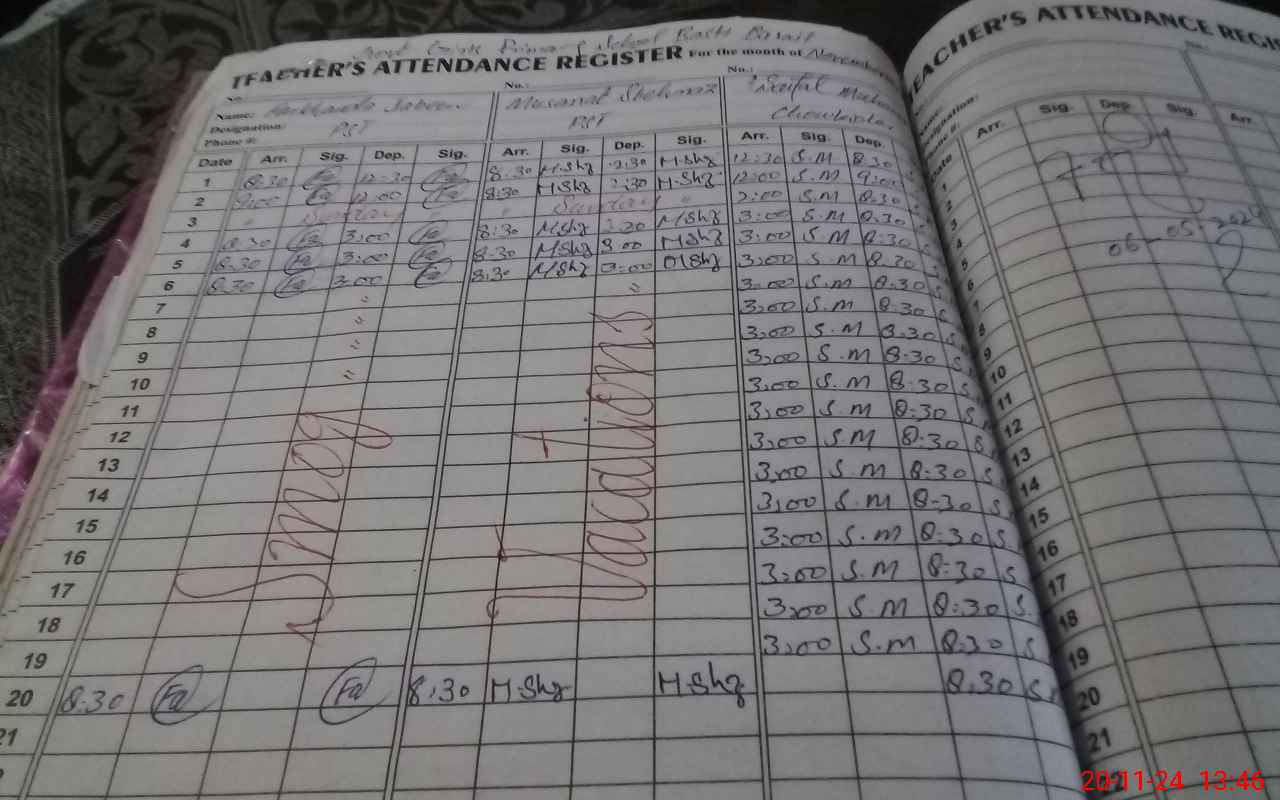 Govt Girls Primary School Basti
TEACHER'S ATTENDANCE REGISTER For the month of November
No.: No.: No.:
Name: Jabeen Musarat Shehnaz
Designation: PST PST Chowkidar
Phone #:
Date Arr. Sig. Dep. Sig. Arr. Sig. Dep. Sig. Arr. Sig. Dep.
1 8:30 Fa 12:30 Fa 8:30 M.Shz 2:30 M.Shz 12:30 S.M 8:30
2 9:00 Fa 12:00 Fa 8:30 M.Shz 2:30 M.Shz 12:00 S.M 9:00
3 " Sunday " " Sunday " 2:00 S.M 8:30
4 8:30 Fa 3:00 Fa 8:30 M.Shz M.Shz 3:00 S.M 8:30
5 8:30 Fa 3:00 Fa 8:30 M.Shz 3:00 M.Shz 3:00 S.M 8:30
6 8:30 Fa 3:00 Fa 8:30 M.Shz 3:00 M.Shz 3:00 S.M 8:30
7 " " 3:00 S.M 8:30
8 " 3:00 S.M 8:30
9 " 3:00 S.M 8:30 S.
10 " 3:00 S.M 8:30 S.
11 3:00 S.M 8:30 S.
12 3:00 S.M 8:30 S.
13 3:00 S.M 8:30 S
14 3:00 S.M 8:30 S
15 3:00 S.M 8:30 S.
16 3:00 S.M 8:30 S.
17 3:00 S.M 8:30 S
18 3:00 S.M 8:30 S.
19 3:00 S.M 8:30 S
20 8:30 Fa Fa 8:30 M.Shz M.Shz 8:30 S.
21
Smog Vacations
TEACHER'S ATTENDANCE REGIS
No.:
Name:
Designation:
Date Arr. Sig. Dep. Sig. Arr.
1
2
3
4
06-05-2024
5
6
7
8
9
10
11
12
13
14
15
16
17
18
19
20
21
20-11-24 13:46